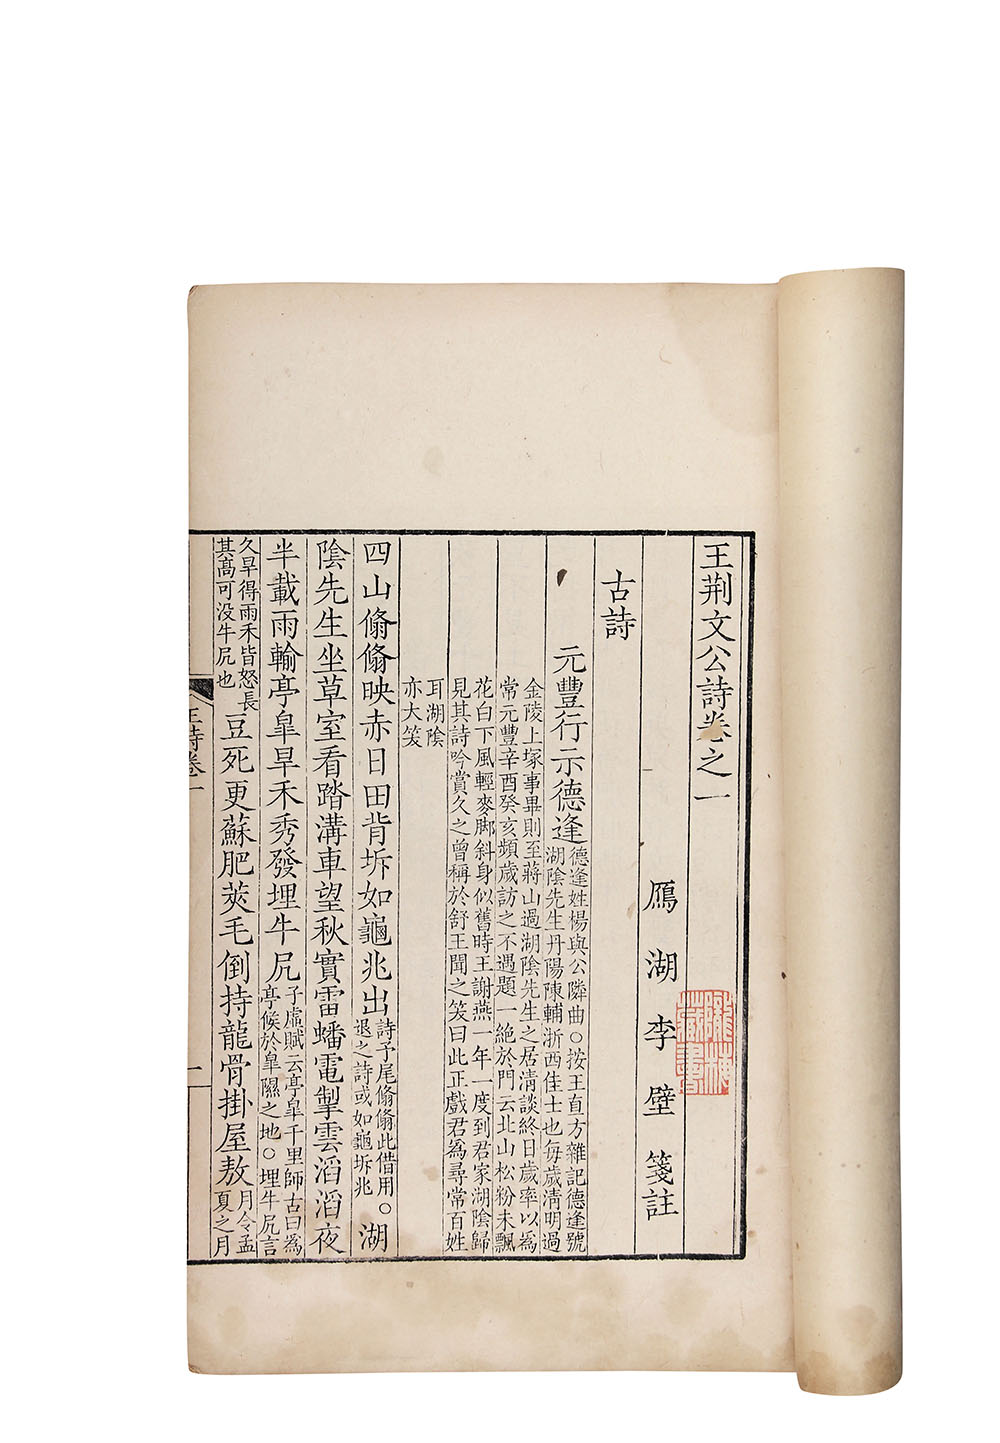 王荆文公詩卷之一
鴈湖李壁箋註
古詩
元豐行示德逢德逢姓楊與公隣曲○按王直方雜記德逢號
湖陰先生丹陽陳輔浙西佳士也每歲清明過
金陵上塚事畢則至蔣山過湖陰先生之居清談終日歲率以為
常元豐辛酉癸亥頻歲訪之不遇題一絶於門云北山松粉未飄
花白下風輕麥脚斜身似舊時王謝燕一年一度到君家湖陰歸
見其詩吟賞久之曾稱於舒王聞之笑曰此正戲君為尋常百姓
耳湖陰
亦大笑
四山翛翛映赤日田背坼如龜兆出詩予尾翛翛此借用○
退之詩或如龜坼兆
湖
陰先生坐草室看踏溝車望秋實雷蟠電掣雲滔滔夜
半載雨輸亭皐旱禾秀發埋牛尻子虛賦云亭皐千里師古曰為
亭候於皐隰之地○埋牛尻言
久旱得雨禾皆怒長
其高可没牛尻也
豆死更蘇肥莢毛倒持龍骨掛屋敖月令孟
夏之月
王詩卷一
一
隴梅
藏書